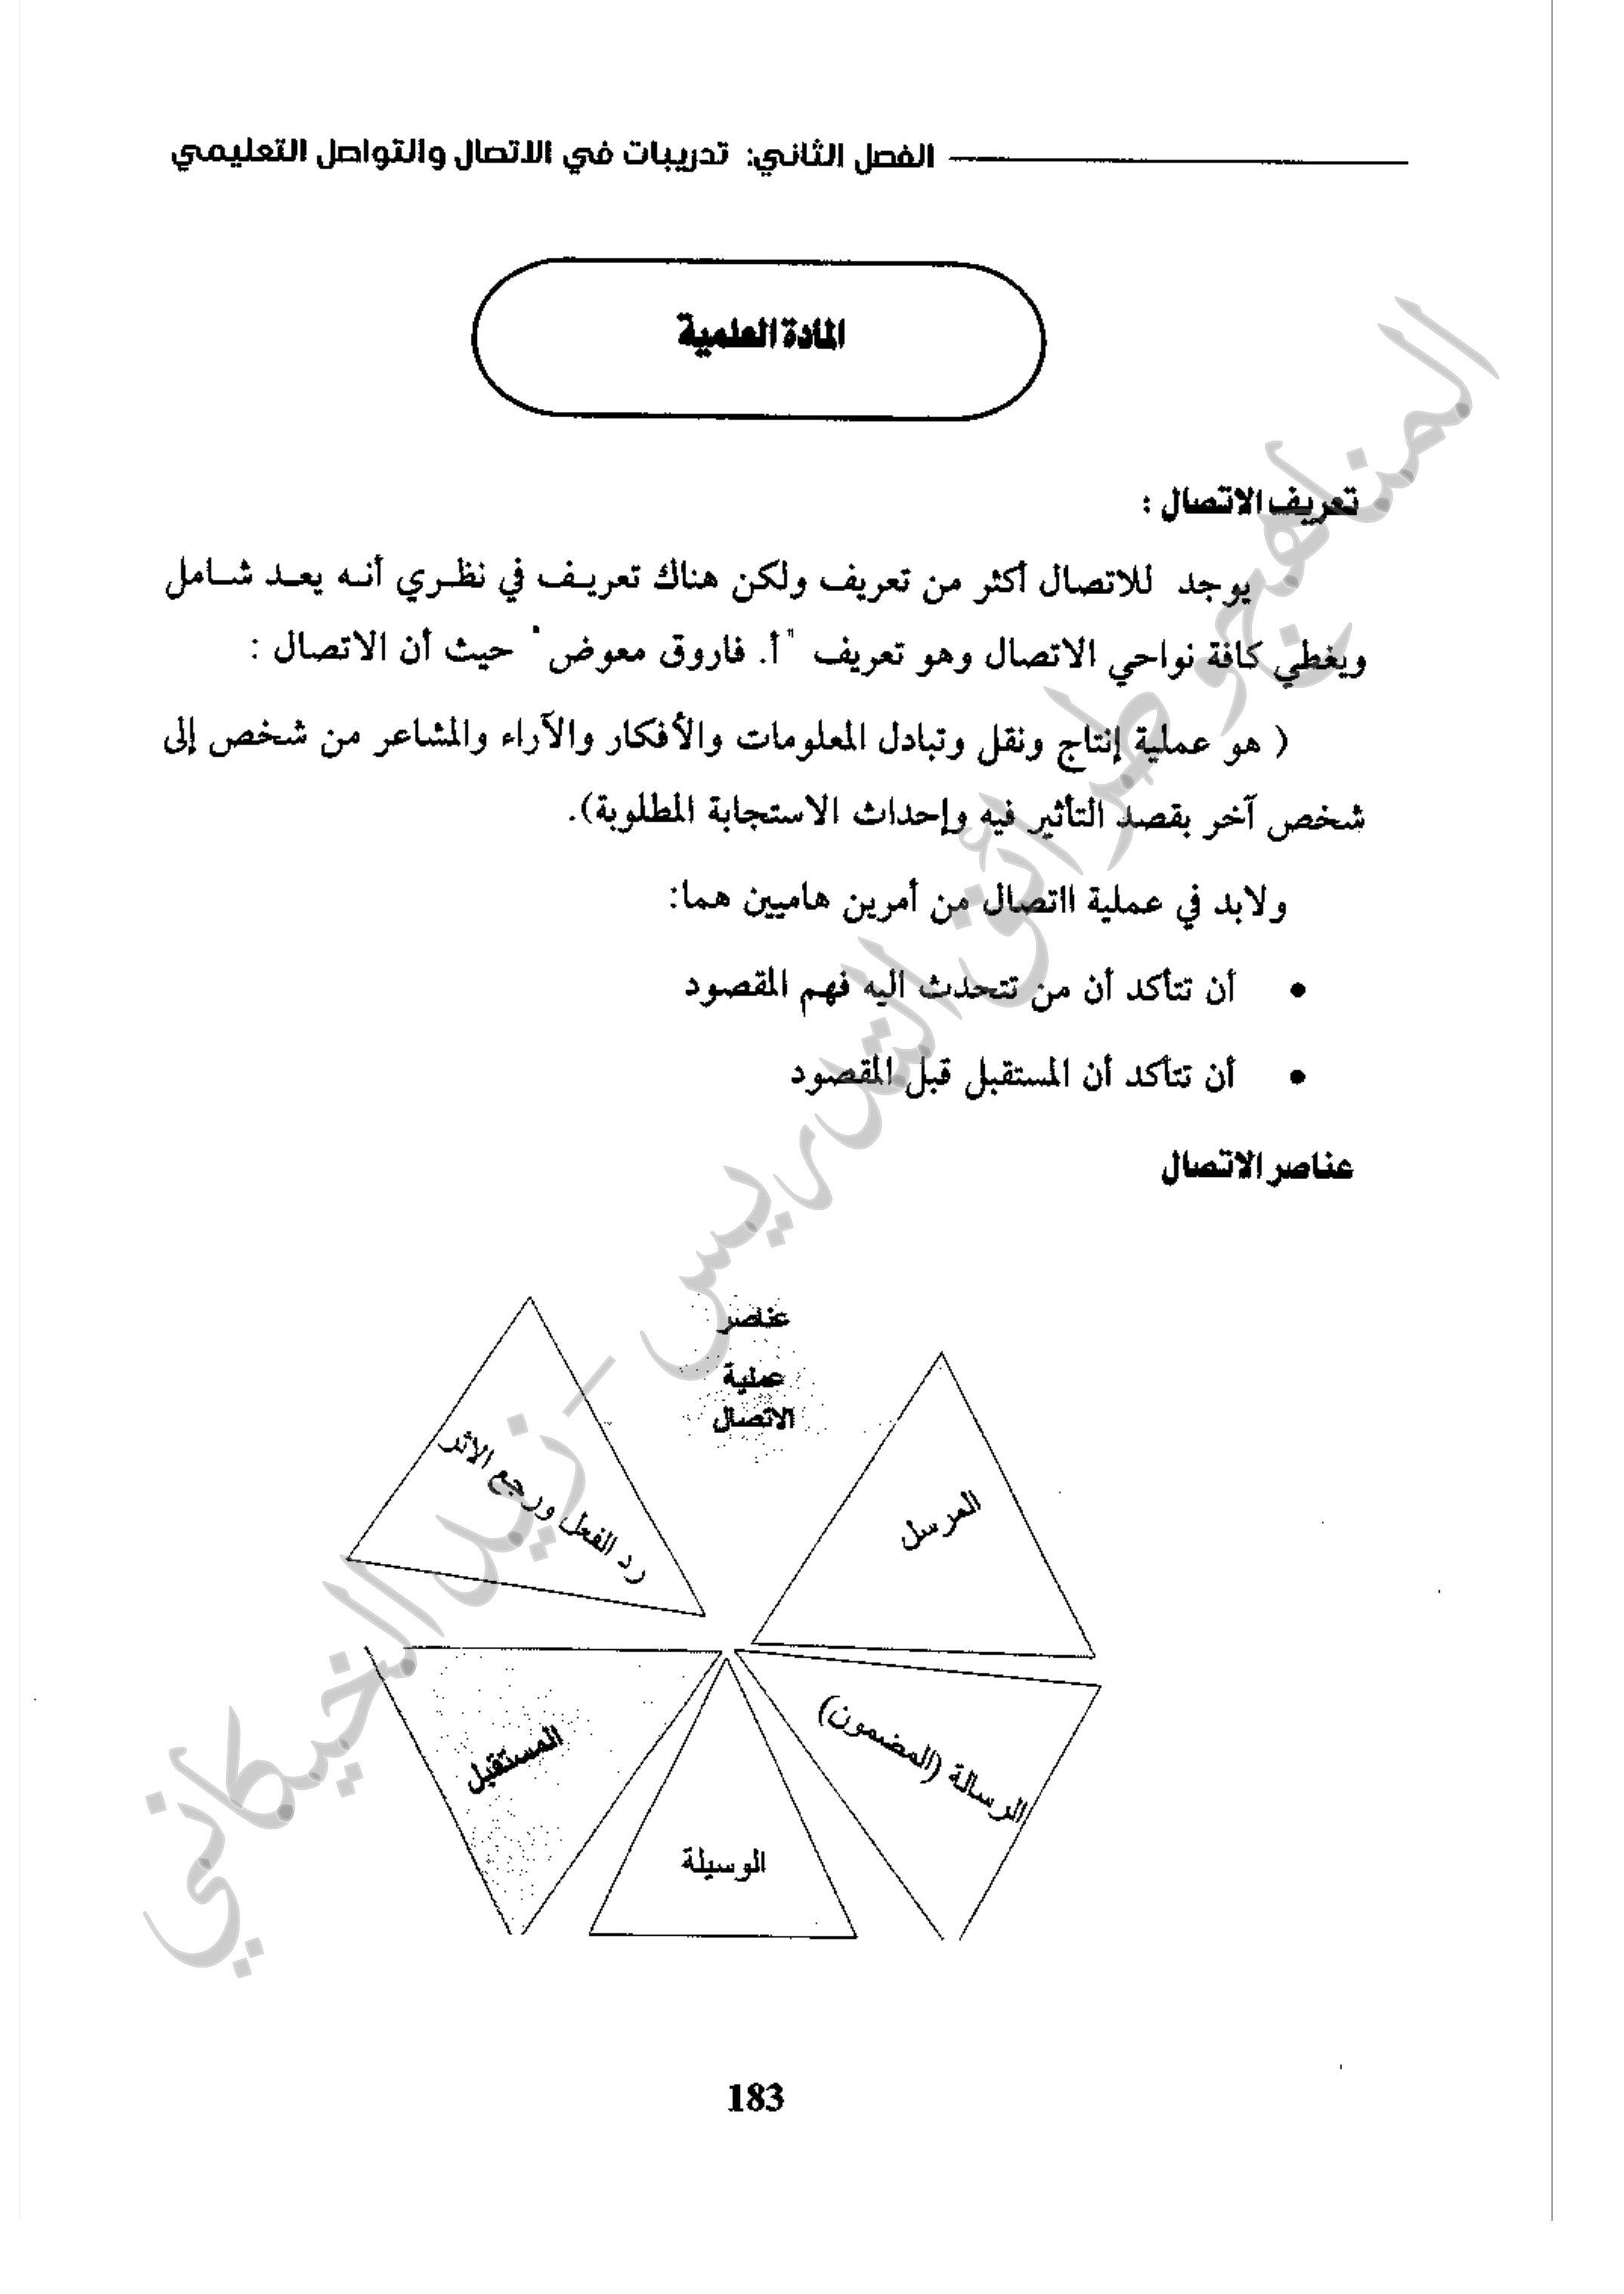 الفصل الثاني: تدريبات في الاتصال والتواصل التعليمي
المادة العلمية
تعريف الاتصال :
يوجد للاتصال أكثر من تعريف ولكن هناك تعريف في نظري أنه يعد شامل
ويغطي كافة نواحي الاتصال وهو تعريف "أ. فاروق معوض" حيث أن الاتصال :
( هو عملية إنتاج ونقل وتبادل المعلومات والأفكار والآراء والمشاعر من شخص إلى
شخص آخر بقصد التأثير فيه وإحداث الاستجابة المطلوبة).
ولابد في عملية ااتصال من أمرين هاميين هما:
• أن تتأكد أن من تتحدث اليه فهم المقصود
• أن تتأكد أن المستقبل قبل المقصود
عناصر الاتصال
عناصر
عملية
الاتصال
المرسل
رد الفعل ورجع الاثر
الرسالة (المضمون)
المستقبل
الوسيلة
183
المناهج وطرائق التدريس _ زيد الخيكاني